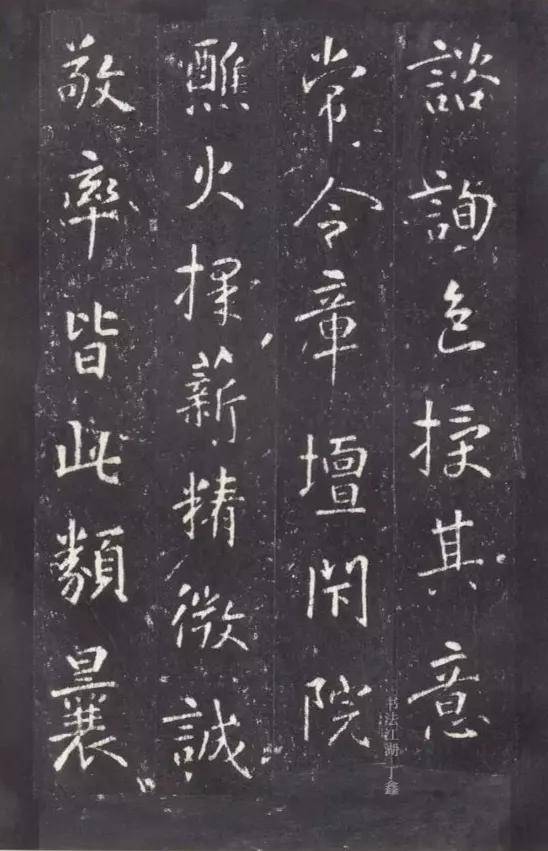 諮詢色授其意
常令章壇閑院
醮火採薪精微誠
敬率皆此類曩
书法江湖 丁鑫